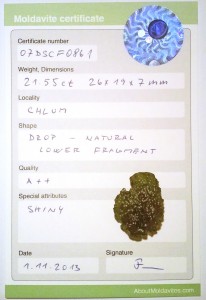 Moldavite certificate
Certificate number
07DSCF0861
Weight, Dimensions
21.55ct 26x19x7mm
Locality
CHLUM
Shape
DROP - NATURAL
LOWER FRAGMENT
Quality
A++
Special attributes
SHINY
Date
Signature
1.11.2013
AboutMoldavites.com